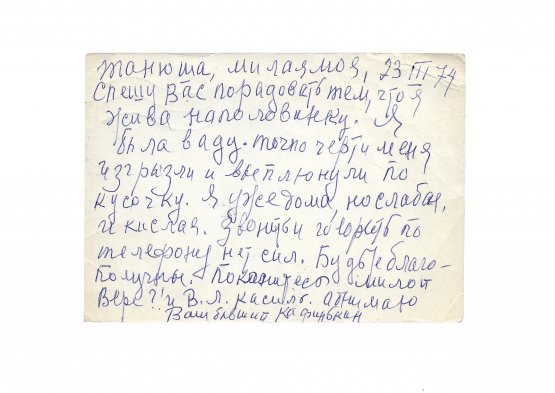 Танюша, милая моя, 23 III 74
Спешу Вас порадовать тем, что я
жива наполовинку. Я
была в аду. точно черти меня
изгрызли и выплюнули по
кусочку. Я уже дома, но слабая,
и кислая. Звонить и говорить по
телефону нет сил. Будьте благо-
получны. милой
Вере?! и В. Л. обнимаю
Ваш бывший